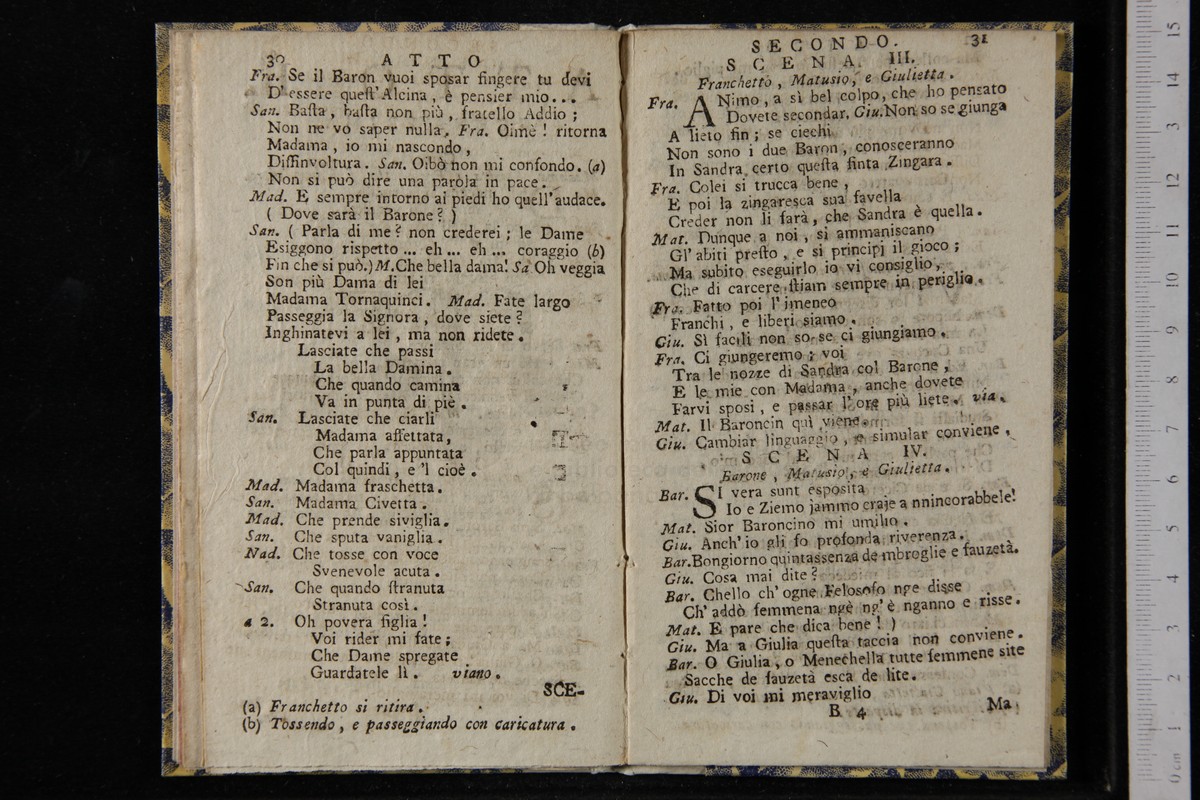 30 ATTO
Fra. Se il Baron vuoi sposar fingere tu devi
D'essere queſt'Alcina, è pensier mio...
San. Baſta, baſta non più, fratello Addio;
Non ne vo saper nulla. Fra. Oimè! ritorna
Madama, io mi nascondo,
Diſſinvoltura. San. Oibò non mi confondo. (a)
Non si può dire una paròla in pace.
Mad. E sempre intorno ai piedi ho quell'audace.
( Dove sarà il Barone? )
San. ( Parla di me? non crederei; le Dame
Esiggono rispetto... eh... eh... coraggio (b)
Fin che si può.) M. Che bella dama! Sa Oh veggia
Son più Dama di lei
Madama Tornaquinci. Mad. Fate largo
Passeggia la Signora, dove siete?
Inghinatevi a lei, ma non ridete.
Lasciate che passi
La bella Damina.
Che quando camina
Va in punta di piè.
San. Lasciate che ciarli
Madama affettata,
Che parla appuntata
Col quindi, e 'l cioè.
Mad. Madama fraschetta.
San. Madama Civetta.
Mad. Che prende siviglia.
San. Che sputa vaniglia.
Nad. Che tosse con voce
Svenevole acuta.
San. Che quando ſtranuta
Stranuta così.
a 2. Oh povera figlia!
Voi rider mi fate;
Che Dame spregate
Guardatele lì. viano.
SCE-
(a) Franchetto si ritira.
(b) Tossendo, e passeggiando con caricatura.
SECONDO. 31
SCENA III.
Franchetto, Matusio, e Giulietta.
Fra. ANimo, a sì bel colpo, che ho pensato
Dovete secondar. Giu. Non so se giunga
A lieto fin; se ciechi
Non sono i due Baron, conosceranno
In Sandra certo queſta finta Zingara.
Fra. Colei si trucca bene,
E poi la zingaresca sua favella
Creder non li farà, che Sandra è quella.
Mat. Dunque a noi, si ammaniscano
Gl'abiti preſto, e si principj il gioco;
Ma subito eseguirlo io vi consiglio,
Che di carcere ſtiam sempre in periglio.
Fra. Fatto poi l'imeneo
Franchi, e liberi siamo.
Giu. Sì facili non so se ci giungiamo.
Fra. Ci giungeremo; voi
Tra le nozze di Sandra col Barone,
E le mie con Madama, anche dovete
Farvi sposi, e passar l'ore più liete. via.
Mat. Il Baroncin quì viene.
Giu. Cambiar linguaggio, e simular conviene.
SCENA IV.
Barone, Matusio, e Giulietta.
Bar. SI vera sunt esposita
Io e Ziemo jammo craje a nnincorabbele!
Mat. Sior Baroncino mi umilio.
Giu. Anch'io gli fo profonda riverenza.
Bar. Bongiorno quintassenza de mbroglie e fauzetà.
Giu. Cosa mai dite?
Bar. Chello ch'ogne Felosofo nge disse
Ch'addò femmena ngè ng'è nganno e risse.
Mat. E pare che dica bene! )
Giu. Ma a Giulia queſta taccia non conviene.
Bar. O Giulia, o Menechella tutte femmene site
Sacche de fauzetà esca de lite.
Giu. Di voi mi meraviglio
B 4 Ma